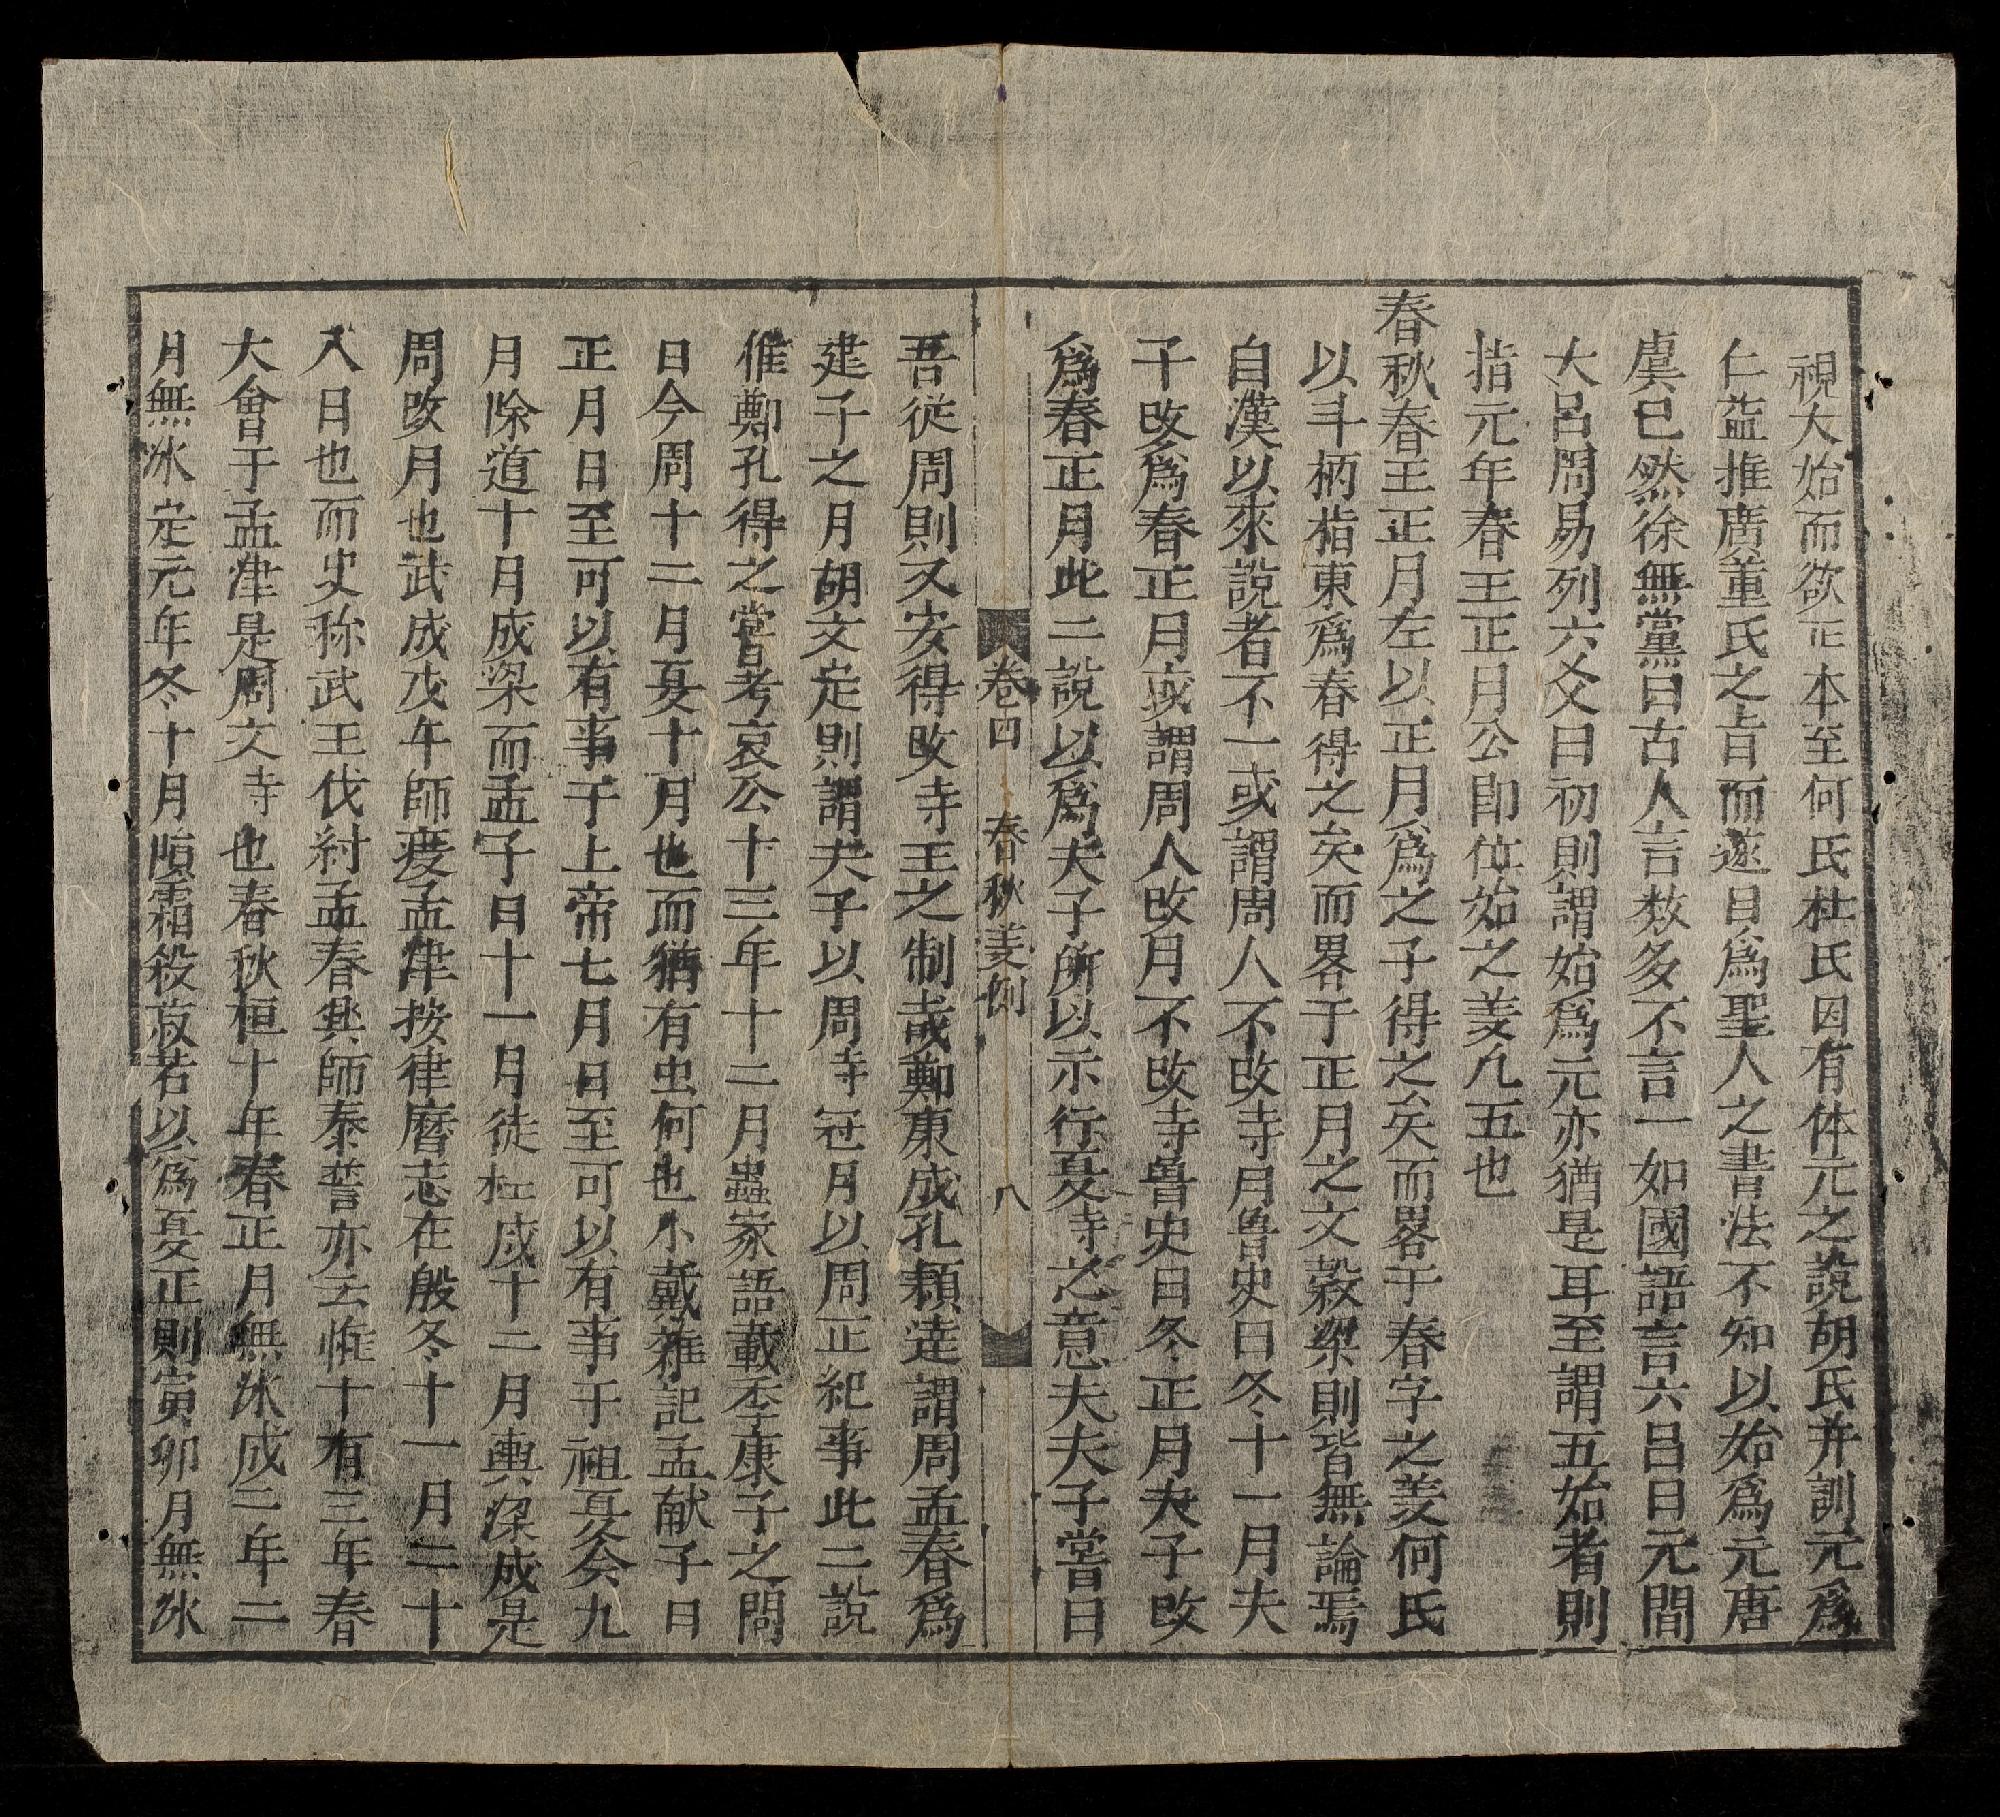 視大始而欲正本至何氏杜氏因有体元之說胡氏并訓元爲
仁益推廣董氏之旨而遂目爲聖人之書法不知以始爲元唐
虞已然徐無黨曰古人言数多不言一如國語言六呂曰元間
大呂周易列六爻曰初則謂始爲元亦猶是耳至謂五始者則
指元年春王正月公即位始之義凡五也
春秋春王正月左以正月爲之子得之矣而畧于春字之義何氏
以斗柄指東爲春得之矣而畧于正月之文穀梁則皆無論焉
自漢以來說者不一或謂周人不改寺月魯史曰冬十一月夫
子改爲春正月或謂周人改月不改寺魯史曰冬正月夫子改
爲春正月此二說以爲夫子所以示行夏寺之意夫夫子嘗曰
卷四 春秋義例 八
吾從周則又安得改寺王之制哉鄭康成孔穎逹謂周孟春爲
建子之月胡文定則謂夫子以周寺冠月以周正紀事此二說
惟鄭孔得之嘗考哀公十三年十二月螽家語載季康子之問
曰今周十二月夏十月也而猶有虫何也小戴雜記孟献子曰
正月日至可以有事于上帝七月日至可以有事于祖夏令九
月除道十月成梁而孟子曰十一月徒杠成十二月輿梁成是
周改月也武成戊午師度孟津按律曆志在殷冬十一月二十
八日也而史称武王伐紂孟春興師泰誓亦云惟十有三年春
大會于孟津是周文寺也春秋桓十年春正月無冰成二年二
月無冰定元年冬十月隕霜殺菽若以爲夏正則寅卯月無冰